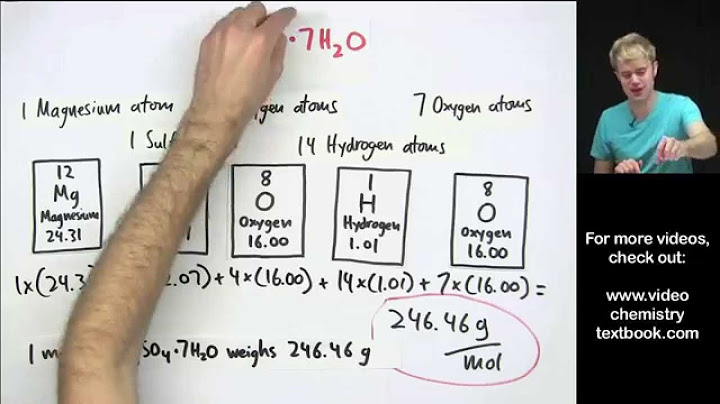 •7H₂O
1 Magnesium atom atoms 7 Oxygen atoms
1 14 Hydrogen atoms
12
Mg
Magnesium
24.31
8
O
Oxygen
16.00
1
H
Hydrogen
1.01
8
O
Oxygen
16.00
1×(24.3 .07) + 4×(16.00) + 14×(1.01) + 7×(16.00) =
246.46 g
mol
1 SO₄•7H₂O weighs 246.46 g
For more videos,
check out:
www.video
chemistry
textbook.com